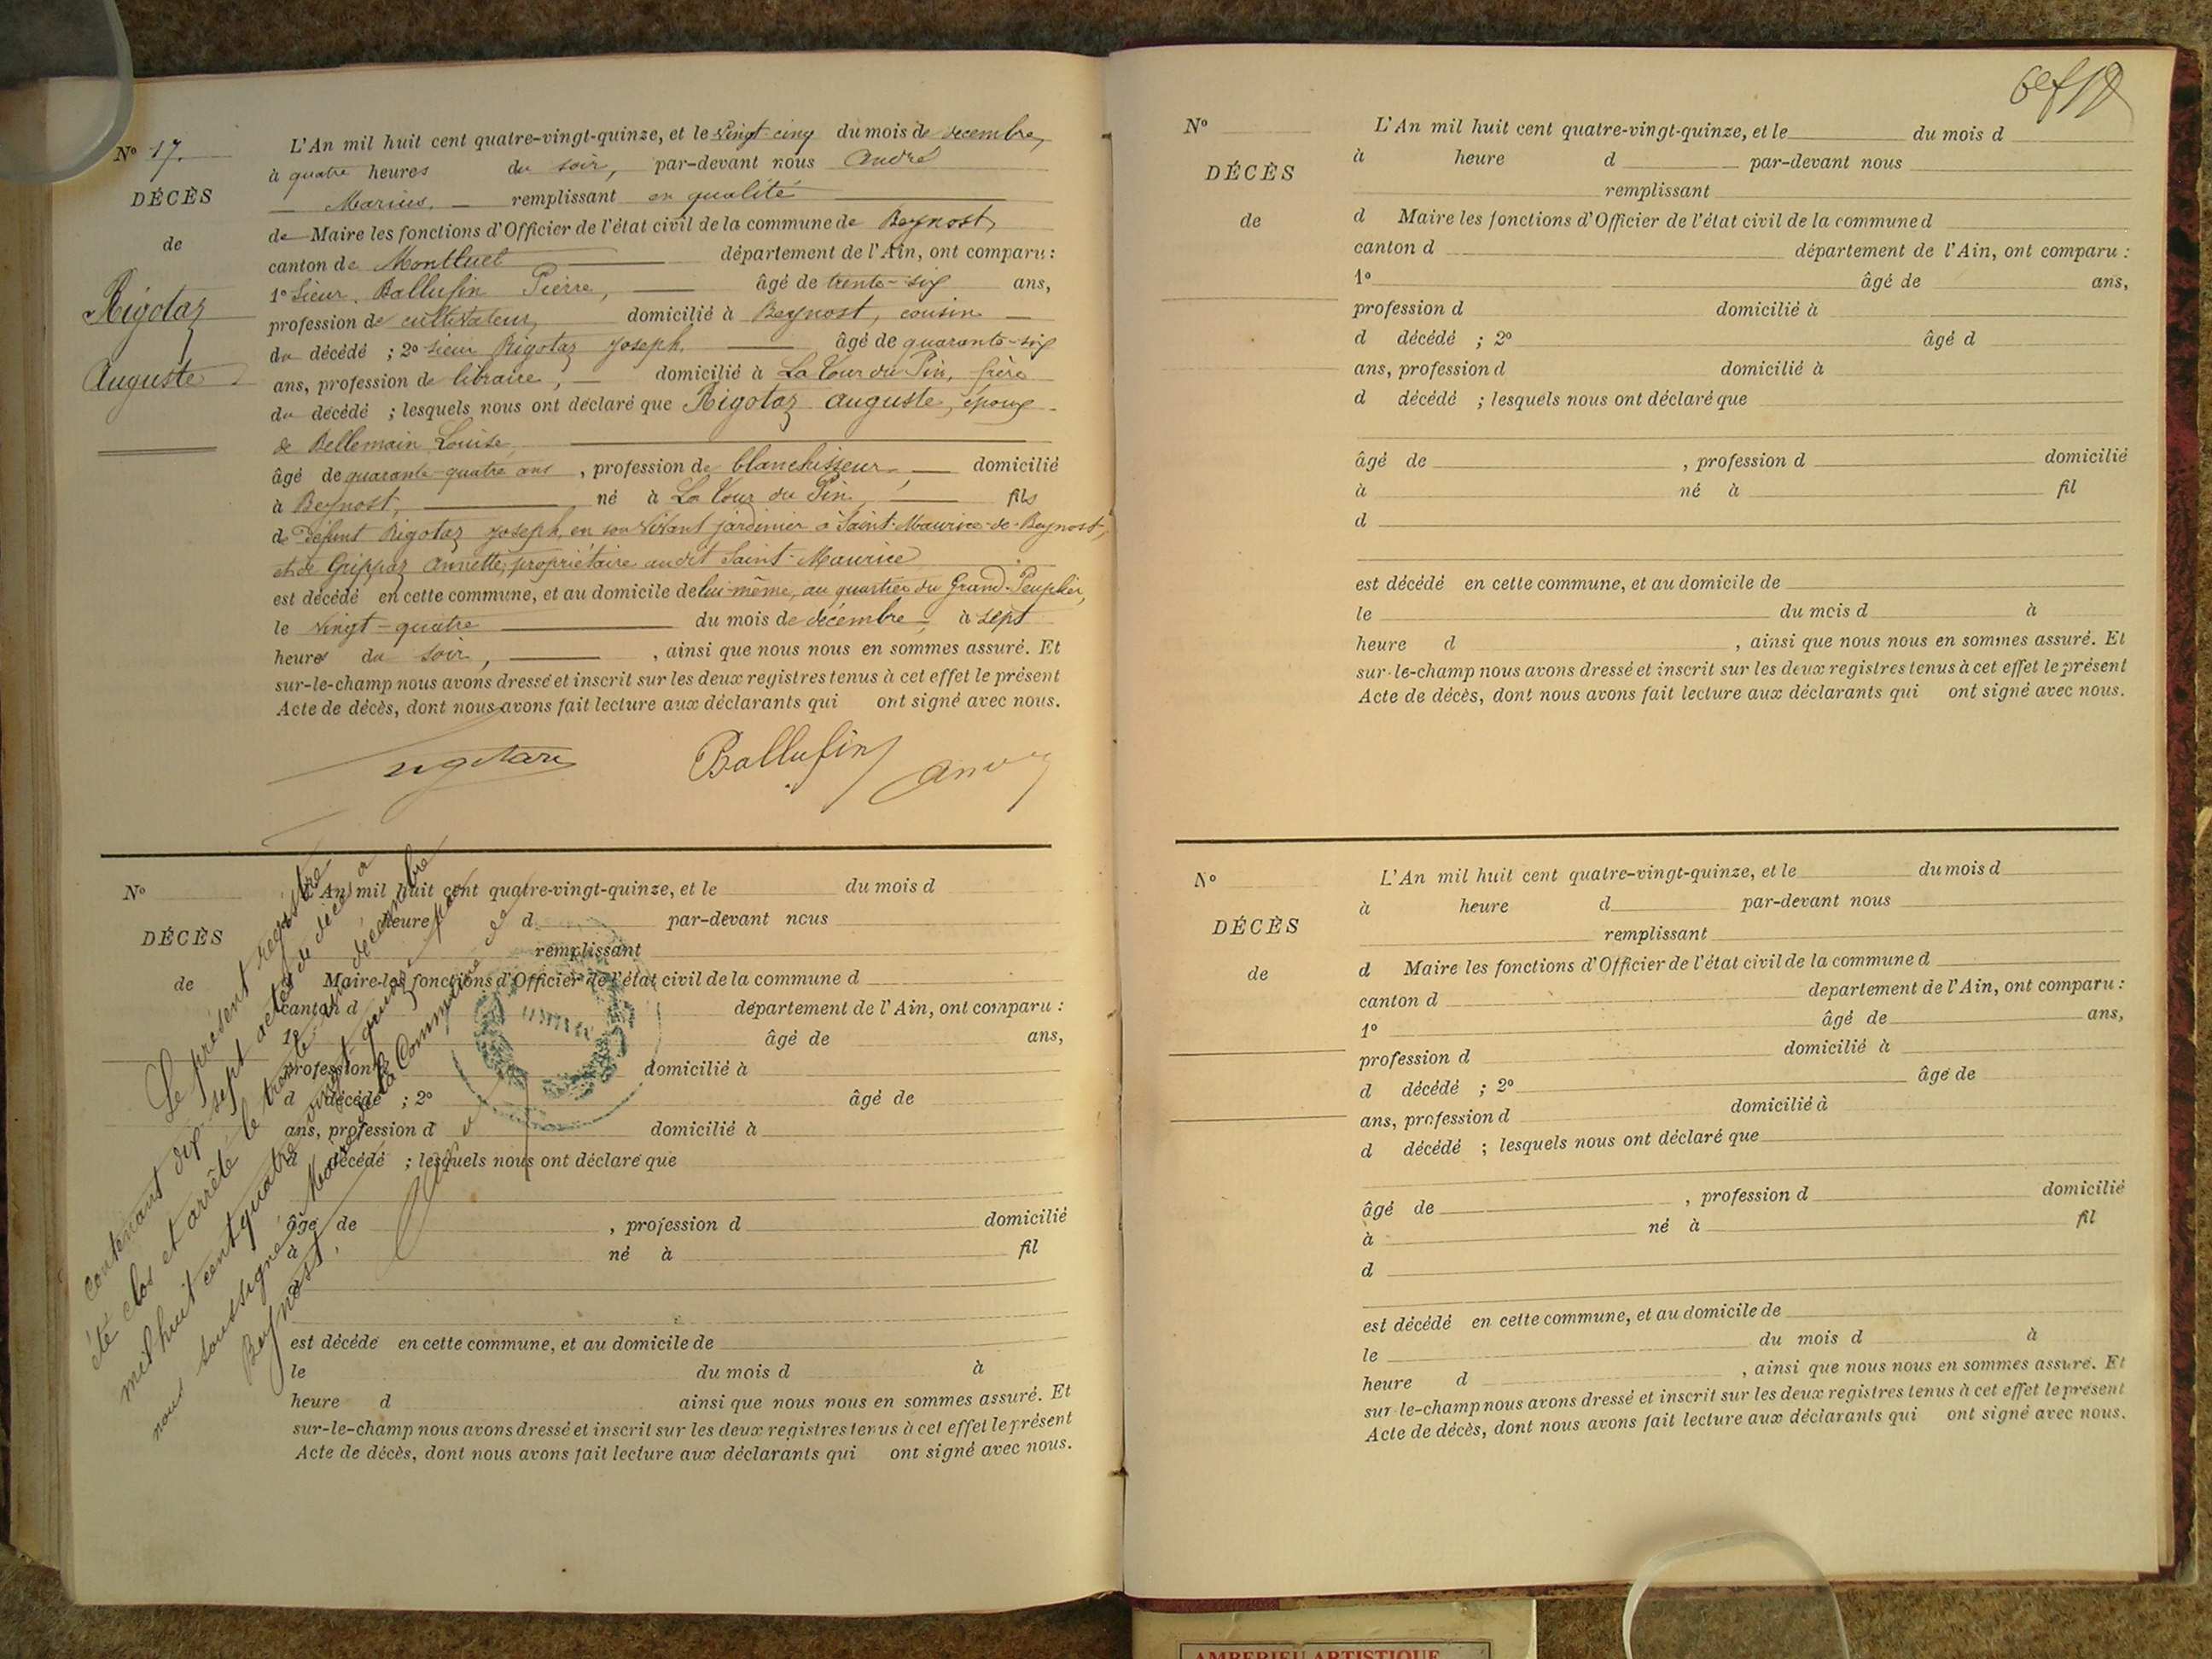 Nº 17.
DÉCÈS
de
Rigotaz
Auguste
L'An mil huit cent quatre-vingt-quinze, et le vingt cinq du mois de décembre,
à quatre heures du soir, par-devant nous André
Marius, remplissant en qualité
de Maire les fonctions d'Officier de l'état civil de la commune de Beynost,
canton de Montluel département de l'Ain, ont comparu :
1º Sieur Ballufin Pierre, âgé de trente-six ans,
profession de cultivateur, domicilié à Beynost, cousin
du décédé ; 2º sieur Rigotaz Joseph, âgé de quarante-six
ans, profession de libraire, domicilié à La Tour du Pin, frère
du décédé ; lesquels nous ont déclaré que Rigotaz Auguste, époux
de Bellemain Louise,
âgé de quarante-quatre ans, profession de blanchisseur, domicilié
à Beynost, né à La Tour du Pin, fils
de défunt Rigotaz Joseph, en son vivant jardinier à Saint-Maurice-de-Beynost,
et de Grippaz Annette, propriétaire audit Saint-Maurice
est décédé en cette commune, et au domicile de lui-même, au quartier du Grand-Peuplier,
le vingt-quatre du mois de décembre, à sept
heures du soir, , ainsi que nous nous en sommes assuré. Et
sur-le-champ nous avons dressé et inscrit sur les deux registres tenus à cet effet le présent
Acte de décès, dont nous avons fait lecture aux déclarants qui ont signé avec nous.
Ballufin
Nº
DÉCÈS
de
L'An mil huit cent quatre-vingt-quinze, et le du mois d
heure d par-devant nous
remplissant
d Maire les fonctions d'Officier de l'état civil de la commune d
canton d département de l'Ain, ont comparu :
1º âgé de ans,
profession d domicilié à
d décédé ; 2º âgé de
ans, profession d domicilié à
d décédé ; lesquels nous ont déclaré que
âgé de , profession d domicilié
à né à fil
d
est décédé en cette commune, et au domicile de
le du mois d à
heure d ainsi que nous nous en sommes assuré. Et
sur-le-champ nous avons dressé et inscrit sur les deux registres tenus à cet effet le présent
Acte de décès, dont nous avons fait lecture aux déclarants qui ont signé avec nous.
Le présent registre
contenant dix-sept actes de décès a
été clos et arrêté le trente un décembre
mil huit cent quatre vingt quinze par
nous soussigné Maire de la Commune de
Beynost.
Nº
DÉCÈS
de
L'An mil huit cent quatre-vingt-quinze, et le du mois d
à heure d par-devant nous
remplissant
d Maire les fonctions d'Officier de l'état civil de la commune d
canton d département de l'Ain, ont comparu :
1º âgé de ans,
profession d domicilié à
d décédé ; 2º âgé d
ans, profession d domicilié à
d décédé ; lesquels nous ont déclaré que
âgé de , profession d domicilié
à né à fil
d
est décédé en cette commune, et au domicile de
le du mois d à
heure d , ainsi que nous nous en sommes assuré. Et
sur-le-champ nous avons dressé et inscrit sur les deux registres tenus à cet effet le présent
Acte de décès, dont nous avons fait lecture aux déclarants qui ont signé avec nous.
Nº
DÉCÈS
de
L'An mil huit cent quatre-vingt-quinze, et le du mois d
à heure d par-devant nous
remplissant
d Maire les fonctions d'Officier de l'état civil de la commune d
canton d departement de l'Ain, ont comparu :
1º âgé de ans,
profession d domicilié à
d décédé ; 2º âgé de
ans, profession d domicilié à
d décédé ; lesquels nous ont déclaré que
âgé de , profession d domicilié
à né à fil
d
est décédé en cette commune, et au domicile de
le du mois d à
heure d , ainsi que nous nous en sommes assuré. Et
sur-le-champ nous avons dressé et inscrit sur les deux registres tenus à cet effet le présent
Acte de décès, dont nous avons fait lecture aux déclarants qui ont signé avec nous.
AMBERIEU ARTISTIQUE